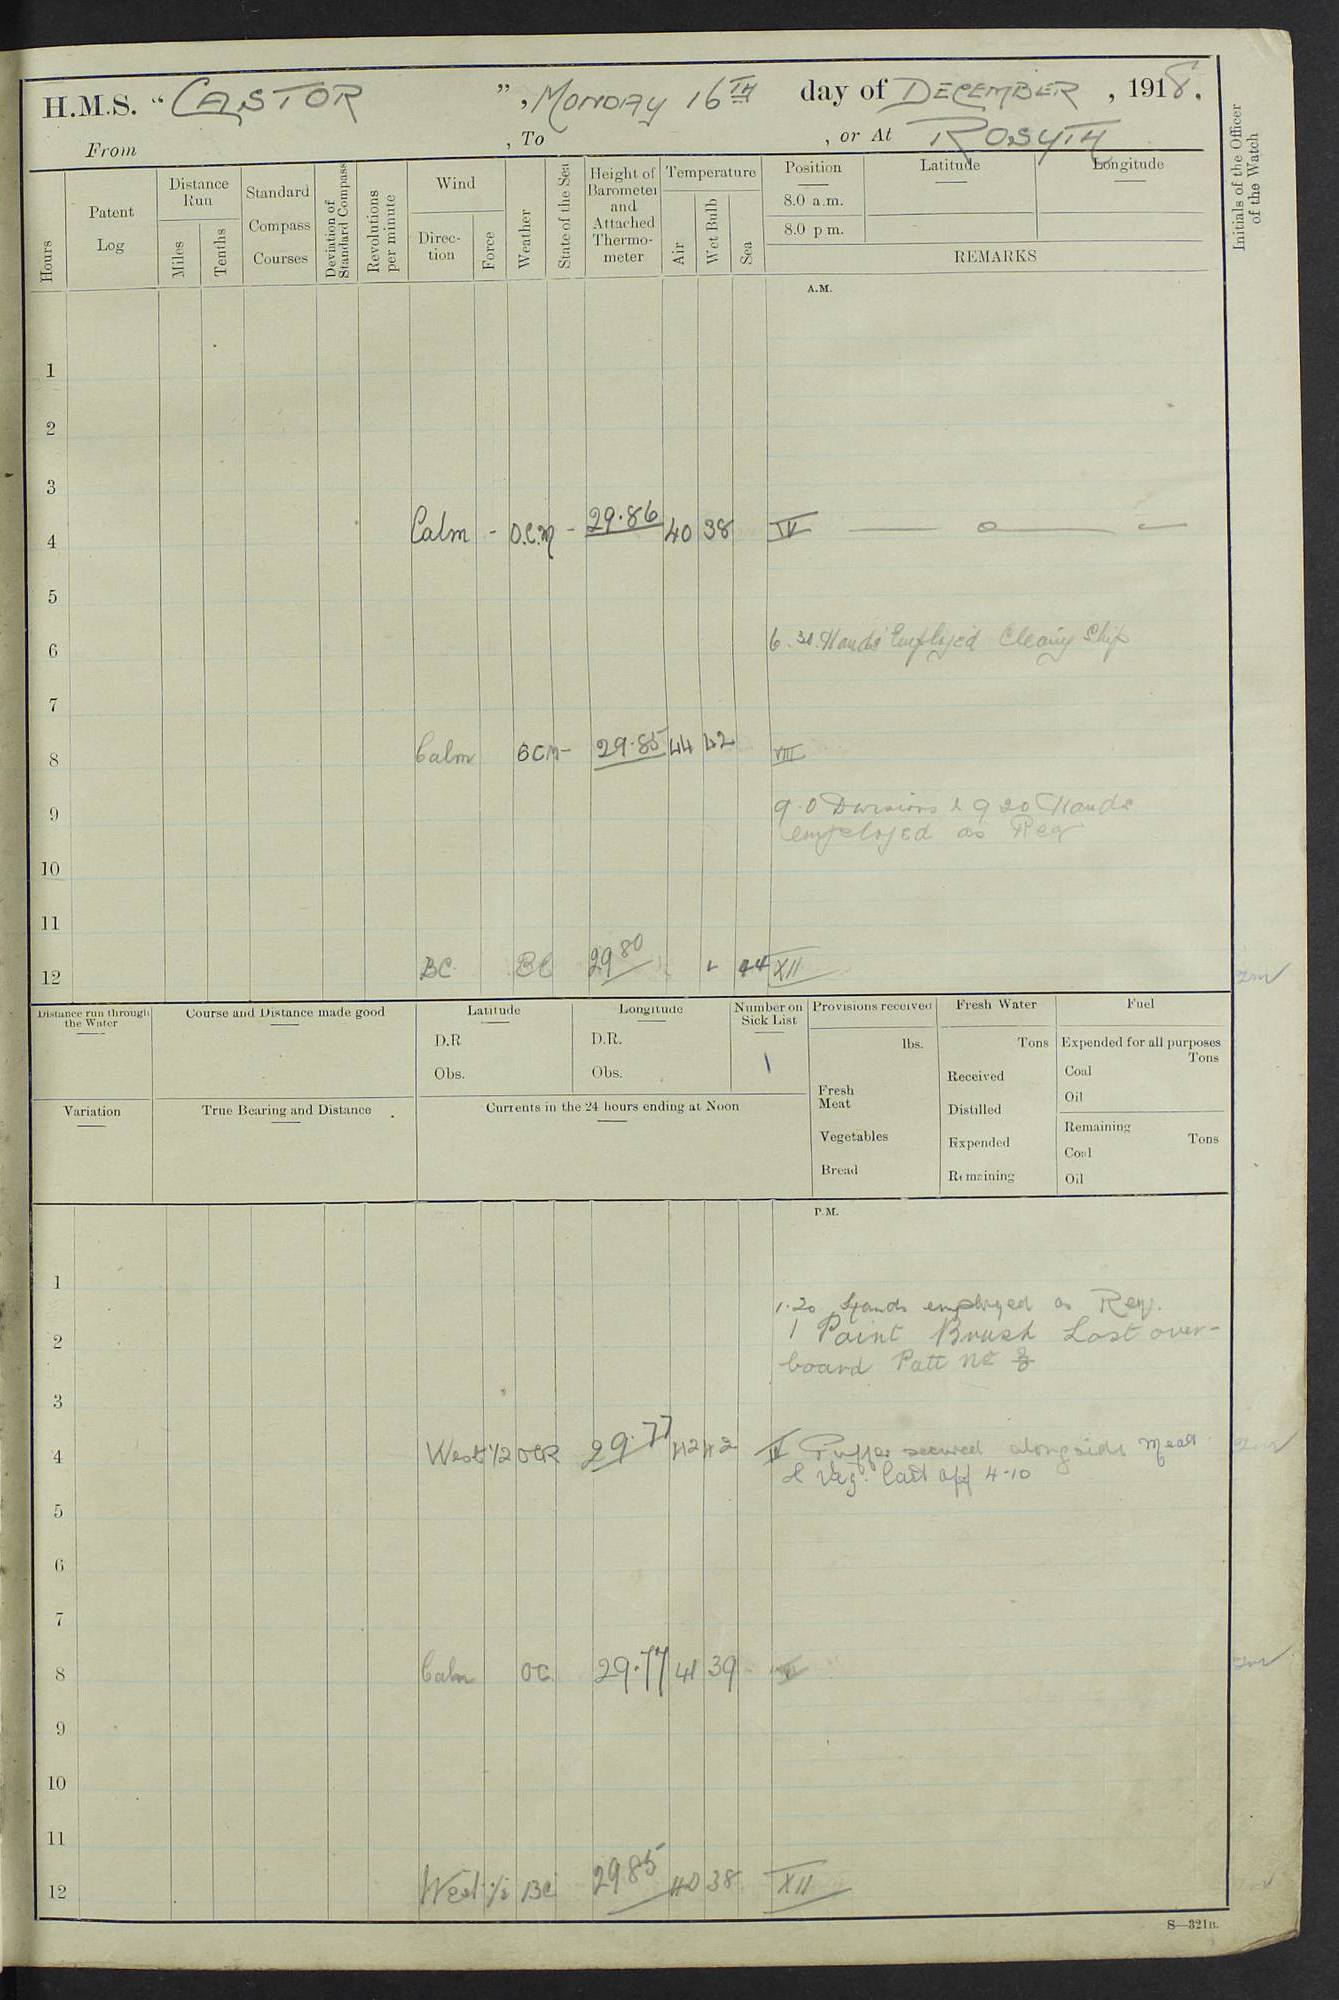 H.M.S. "CASTOR", MONDAY 16TH day of DECEMBER, 1918.
From , To , or At ROSYTH
Initials of the Officer of the Watch
Hours
Patent Log
Distance Run
Miles
Tenths
Standard Compass Courses
Deviation of Standard Compass
Revolutions per minute
Wind
Direction
Force
Weather
State of the Sea
Height of Barometer and Attached Thermometer
Temperature
Air
Wet Bulb
Sea
Position
8.0 a.m.
8.0 p.m.
Latitude
Longitude
REMARKS
A.M.
1
2
3
4 Calm - O.C.M - 29.86 40 38 IV
5
6 6.30 Hands Employed Cleaning Ship
7
8 Calm OCM - 29.85 44 42 VIII
9 9.0 Divisions & 9 20 Hands
employed as Req
10
11
12 BC BC 29 80 44 XII
Distance run through the Water
Course and Distance made good
Latitude
D.R
Obs.
Longitude
D.R.
Obs.
Number on Sick List
1
Provisions received
lbs.
Fresh Meat
Vegetables
Bread
Fresh Water
Tons
Received
Distilled
Expended
Remaining
Fuel
Expended for all purposes
Tons
Coal
Oil
Remaining
Tons
Coal
Oil
Variation
True Bearing and Distance
Currents in the 24 hours ending at Noon
P.M.
1
1.20 Hands employed as Req.
2 1 Paint Brush Lost over-
board Patt No
3
4 West 1/2 OCR 29.77 42 42 IV Puffer secured alongside Meat
& Veg. Cast off 4-10
5
6
7
8 Calm OC 29.77 41 39
9
10
11
12 West 1/2 BC 29 85 40 38 XII
S—321B.